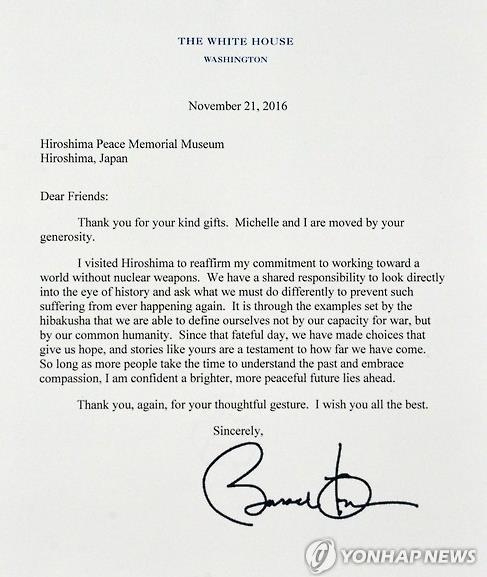 THE WHITE HOUSE
WASHINGTON
November 21, 2016
Hiroshima Peace Memorial Museum
Hiroshima, Japan
Dear Friends:
Thank you for your kind gifts. Michelle and I are moved by your
generosity.
I visited Hiroshima to reaffirm my commitment to working toward a
world without nuclear weapons. We have a shared responsibility to look directly
into the eye of history and ask what we must do differently to prevent such
suffering from ever happening again. It is through the examples set by the
hibakusha that we are able to define ourselves not by our capacity for war, but
by our common humanity. Since that fateful day, we have made choices that
give us hope, and stories like yours are a testament to how far we have come.
So long as more people take the time to understand the past and embrace
compassion, I am confident a brighter, more peaceful future lies ahead.
Thank you, again, for your thoughtful gesture. I wish you all the best.
Sincerely,
YONHAP NEWS